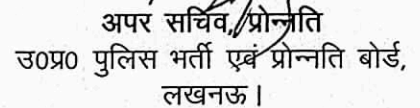 अपर सचिव, प्रोन्नति
उ0प्र0 पुलिस भर्ती एवं प्रोन्नति बोर्ड,
लखनऊ।